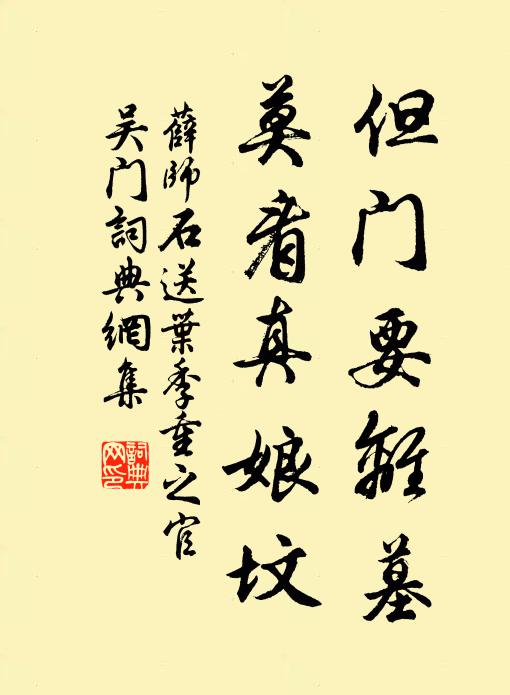 但门要離墓
莫看真娘坟
薛師石送葉季重之官
吴门詞典網集
詞典网印